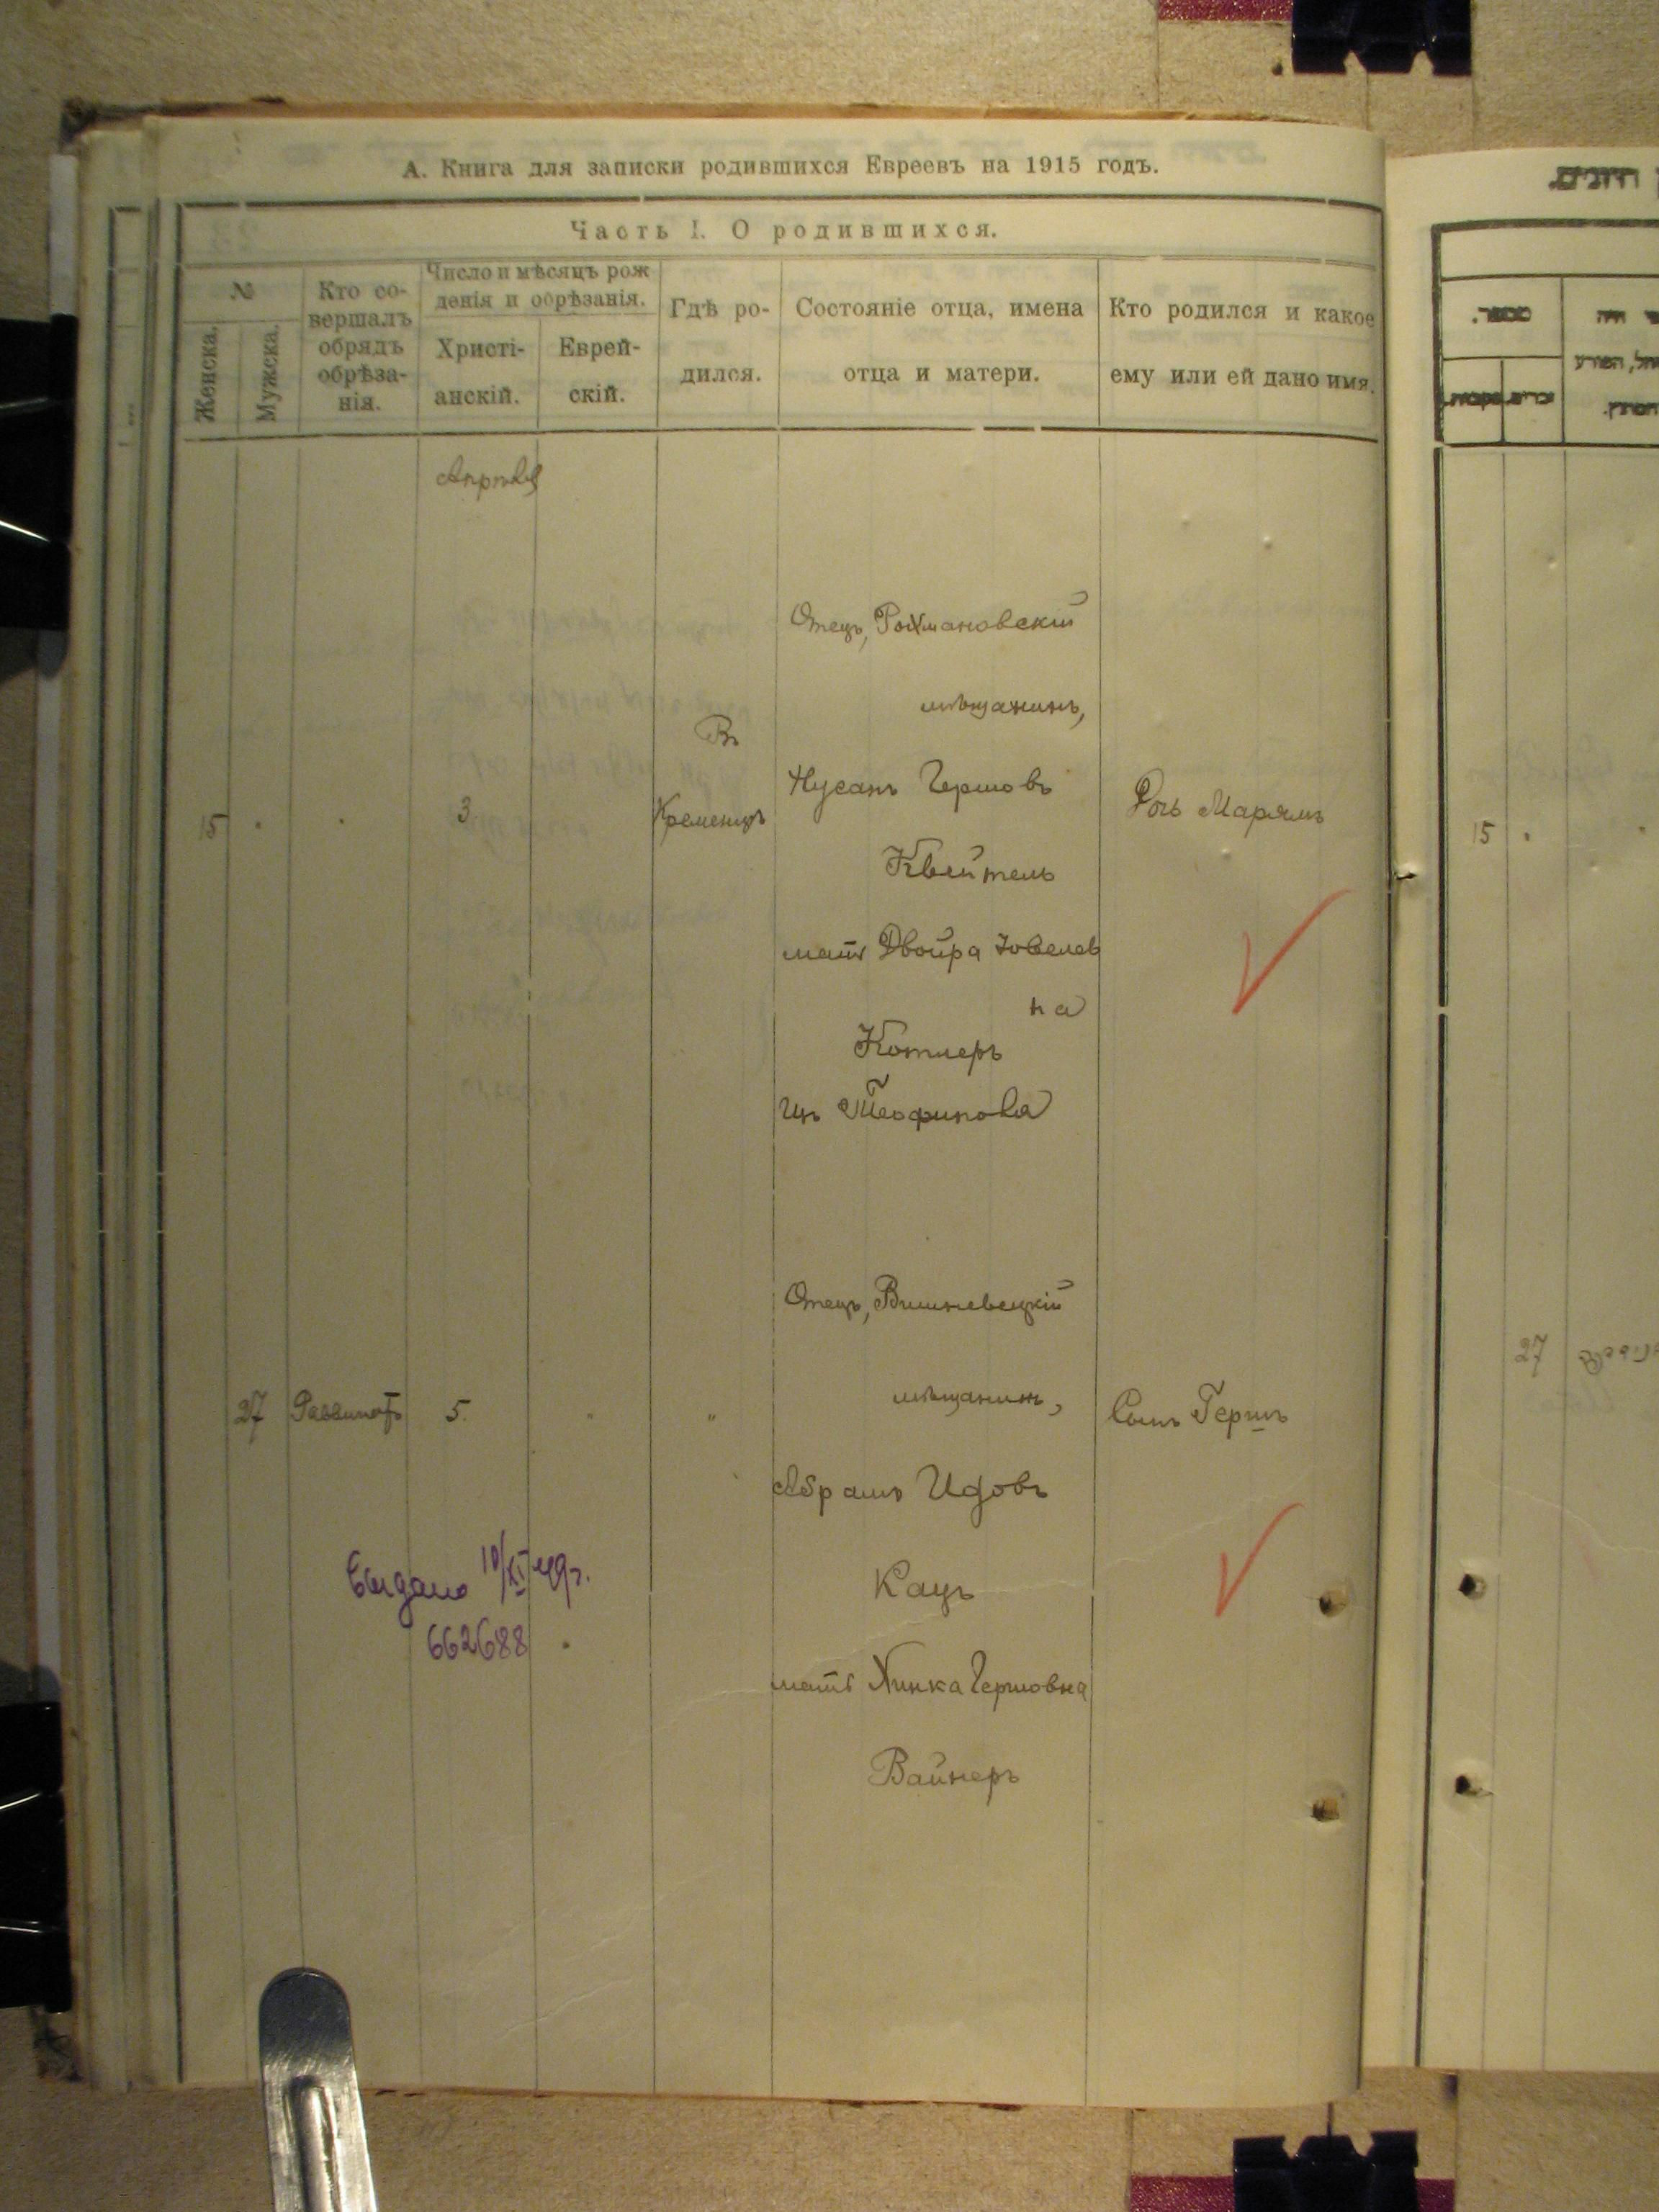 А. Книга для записки родившихся Евреевъ на 1915 годъ.
Часть I. О родившихся.
№
Женска.
Мужска.
Кто со-
вершалъ
обрядъ
обрѣза-
нія.
Число и мѣсяцъ рож
денія и обрѣзанія.
Христі-
анскій.
Еврей-
скій.
Гдѣ ро-
дился.
Состояніе отца, имена
отца и матери.
Кто родился и какое
ему или ей дано имя.
Апрѣля
15
3
Въ
Кременцѣ
Отецъ, Рохмановскій
мѣщанинъ,
Нусанъ Гершовъ
Квейтель
мать Двойра Іовелев
на
Котлеръ
изъ Теофиполя
Дочь Марямъ
27
Раввинатъ
5.
"
Отецъ, Вишневецкій
мѣщанинъ,
Абрамъ Идовъ
Кацъ
мать Хинка Гершовна
Вайнеръ
Сынъ Гершъ
Выдано 10/XI 49г.
662688
מספר.
זכרים.
נקבות.
15
27